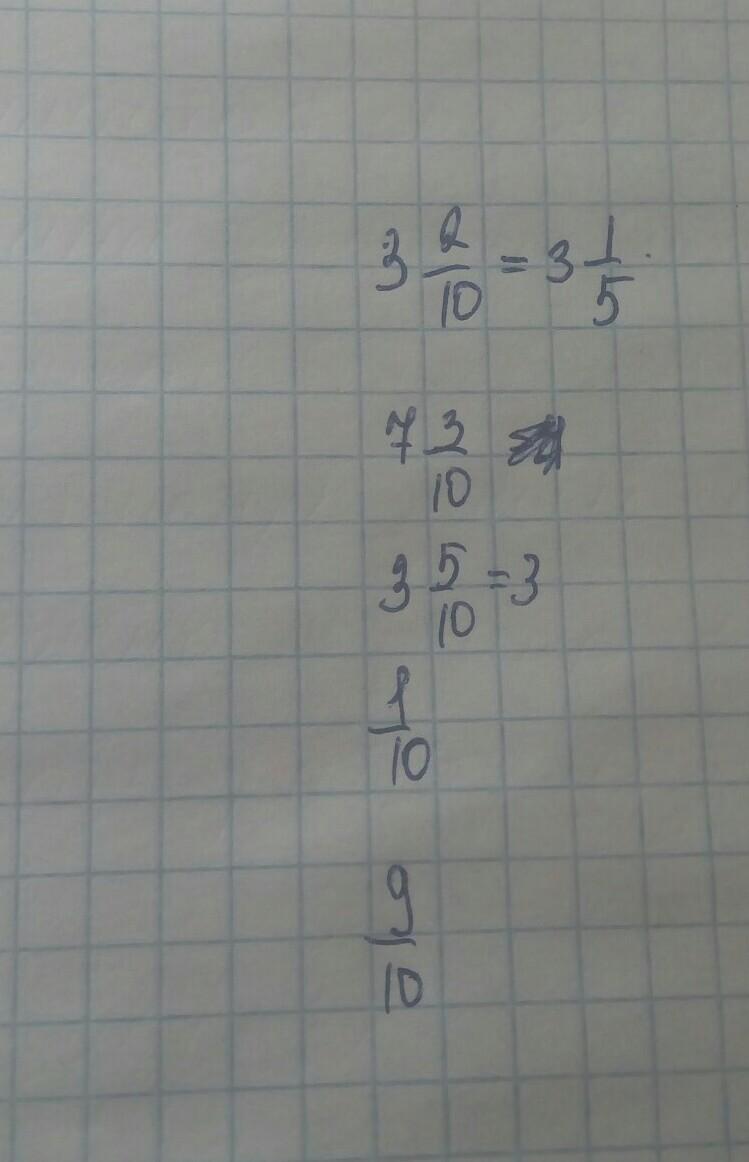 3 2/10 = 3 1/5
7 3/10
3 5/10 = 3
1/10
9/10